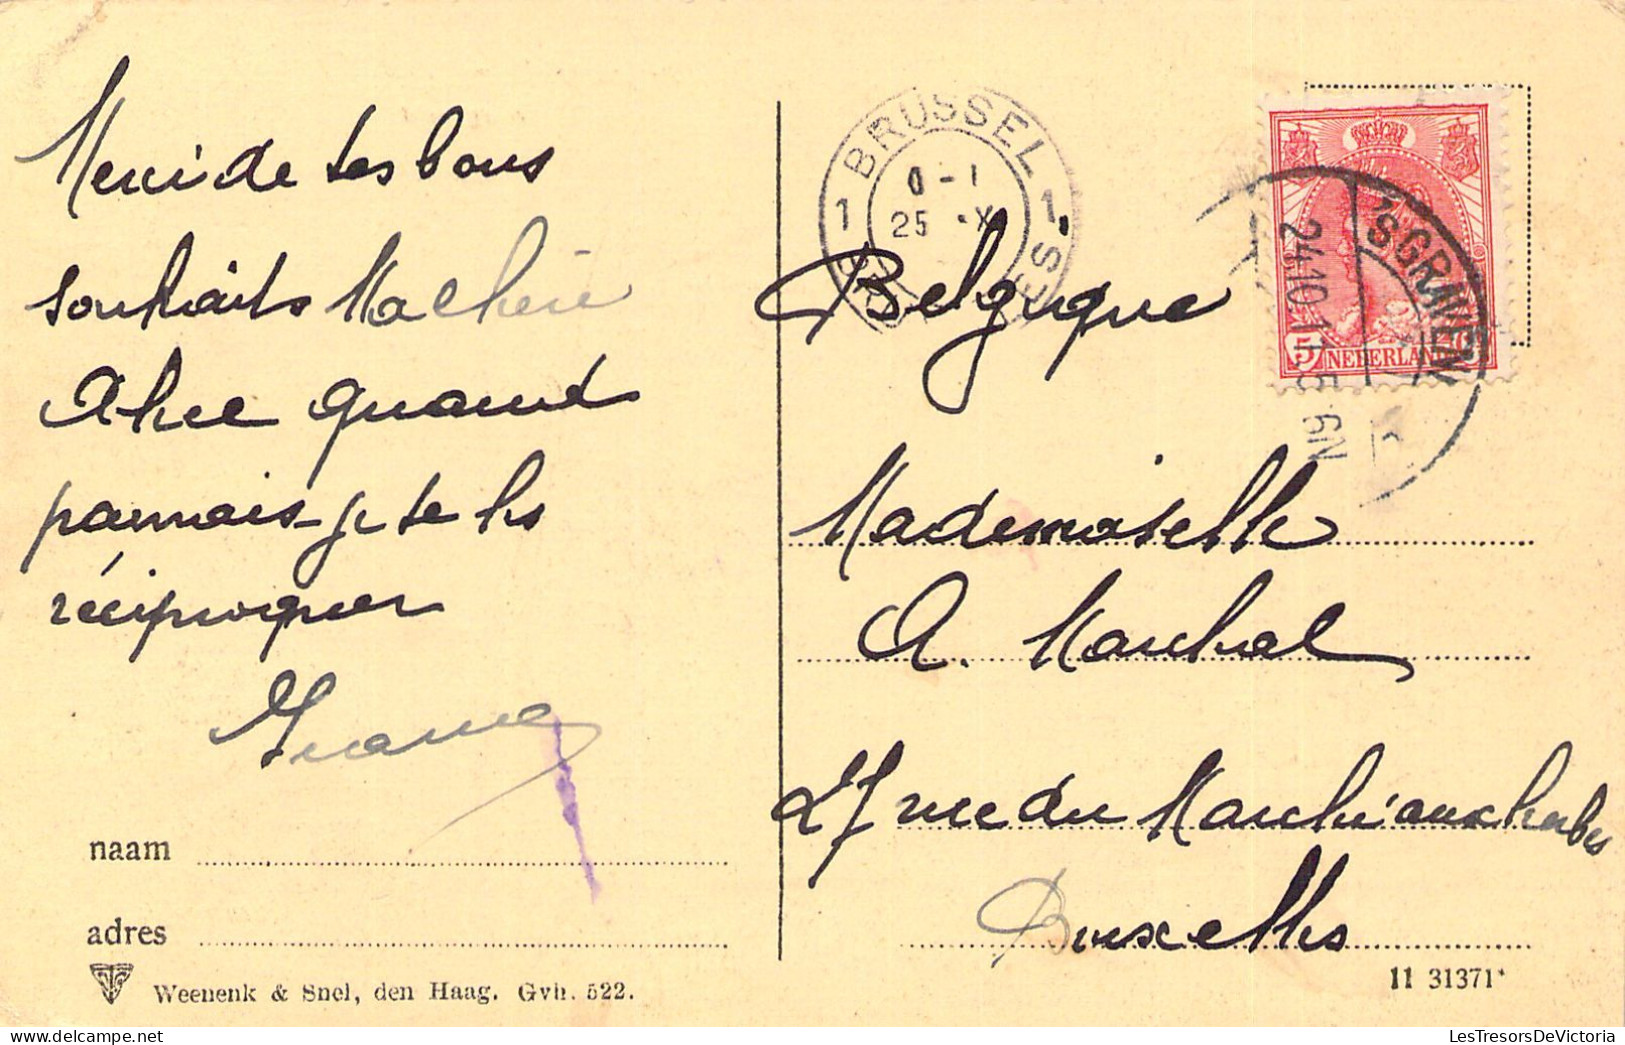 Merci de tes bons
souhaits Ma chérie
A hee quand
pannais je te les
réciproquer
naam
adres
Weenenk & Snel, den Haag. Gvh. 522.
BRUSSEL
1 1
0-1
25 X
BR ES
'SGRAVEN
24.10.11 5-6N
5 NEDERLAND
Belgique
Mademoiselle
A. Marchal
27 rue du Marché aux herbes
Bruxelles
11 31371*
LesTresorsDeVictoria